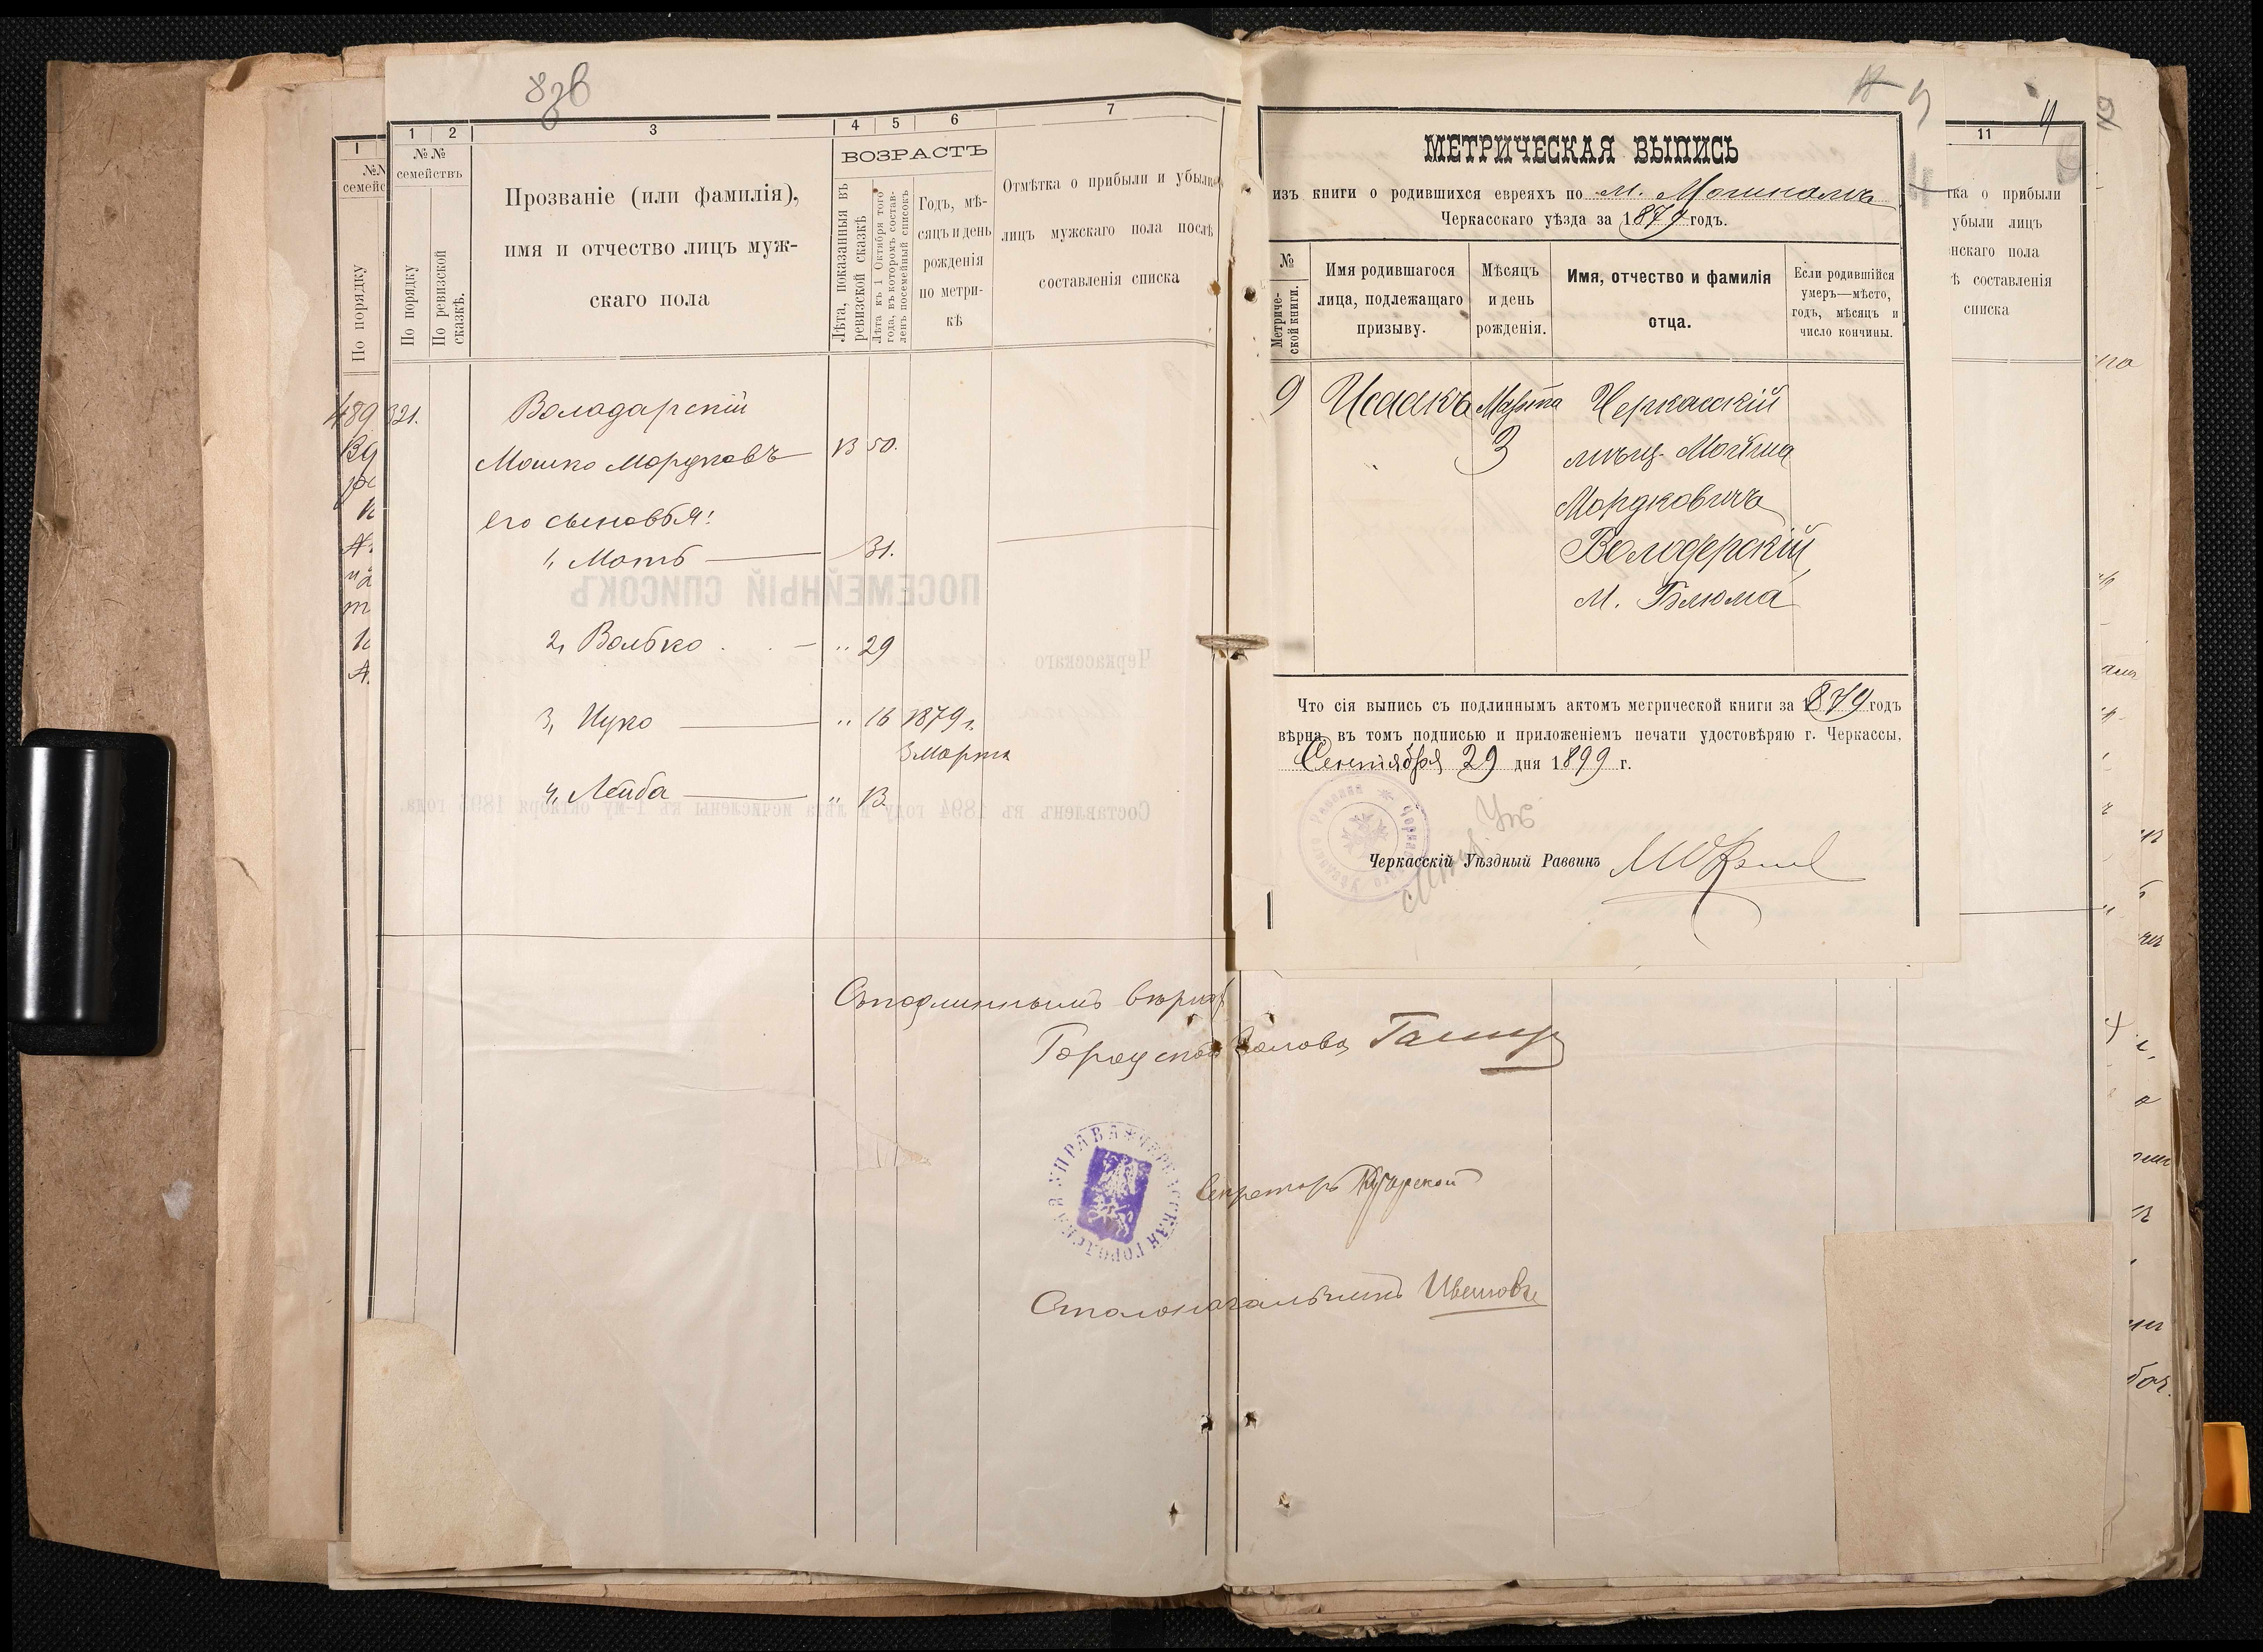 1
2
3
4
5
6
7
№№
семействъ
По порядку
По ревизской
сказкѣ.
Прозваніе (или фамилія),
имя и отчество лицъ муж-
скаго пола
ВОЗРАСТЪ
Лѣта, показанныя въ
ревизской сказкѣ
Лѣта къ 1 Октября того
года, въ которомъ состав-
ленъ посемейный списокъ
Годъ, мѣ-
сяцъ и день
рожденія
по метри-
кѣ
Отмѣтка о прибыли и убыли
лицъ мужскаго пола послѣ
составленія списка
1
семейс
По порядку
489
321.
Володарскій
Мошко Мордковъ 13 50.
его сыновья:
1, Моть 31.
2, Волько " 29
3, Ицко " 16 1879 г.
3 Марта
4, Лейба " 13
ПОСЕМЕЙНЫЙ СПИСОКЪ
Черкасскаго
Составленъ въ 1894 году и лѣта исчислены къ 1-му октября 1895 года.
Съ подлиннымъ вѣрно:
Городской Голова
ЧЕРКАССКАЯ ГОРОДСКАЯ УПРАВА
Секретарь
Столоначальникъ
МЕТРИЧЕСКАЯ ВЫПИСЬ
изъ книги о родившихся евреяхъ по м.
Черкасскаго уѣзда за 1879 годъ.
№
Метриче-
ской книги.
Имя родившагося
лица, подлежащаго
призыву.
Мѣсяцъ
и день
рожденія.
Имя, отчество и фамилія
отца.
Если родившійся
умеръ—мѣсто,
годъ, мѣсяцъ и
число кончины.
9 Исаакъ Марта Черкасскій
3 мѣщ. Мойша
Мордковичъ
Володерскій
М. Блюма
Что сія выпись съ подлиннымъ актомъ метрической книги за 1879 годъ
вѣрна, въ томъ подписью и приложеніемъ печати удостовѣряю г. Черкассы,
Сентября 29 дня 1899 г.
Черкасскій Уѣздный Раввинъ
11
тка о прибыли
убыли лицъ
нскаго пола
ѣ составленія
списка